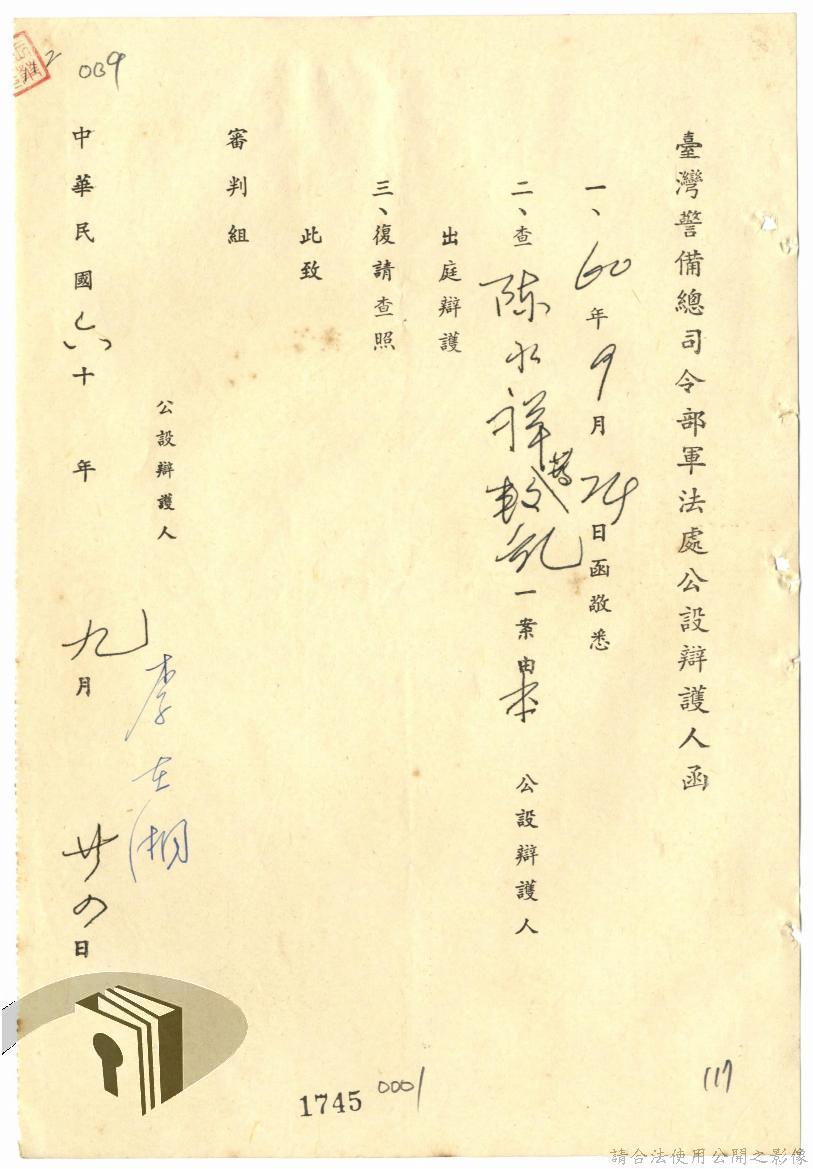 臺灣警備總司令部軍法處公設辯護人函
一、60年9月24日函敬悉
二、查陳水祥等叛亂一案由本公設辯護人
出庭辯護
三、復請查照
此致
審判組
公設辯護人 李
中華民國六十年九月廿四日
009
1745
0001
117
請合法使用公開之影像